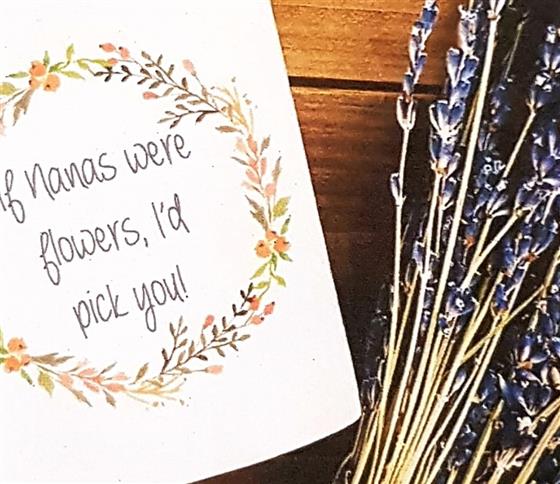 If Nanas were
flowers, I'd
pick you!